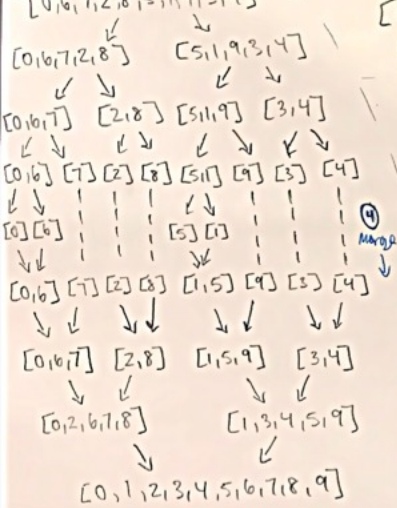 [0,6,7,2,8,5,1,9,3,4]
[0,6,7,2,8] [5,1,9,3,4]
[0,6,7] [2,8] [5,1,9] [3,4]
[0,6] [7] [2] [8] [5,1] [9] [3] [4]
[0] [6] [5] [1]
4
Merge
[0,6] [7] [2] [8] [1,5] [9] [3] [4]
[0,6,7] [2,8] [1,5,9] [3,4]
[0,2,6,7,8] [1,3,4,5,9]
[0,1,2,3,4,5,6,7,8,9]